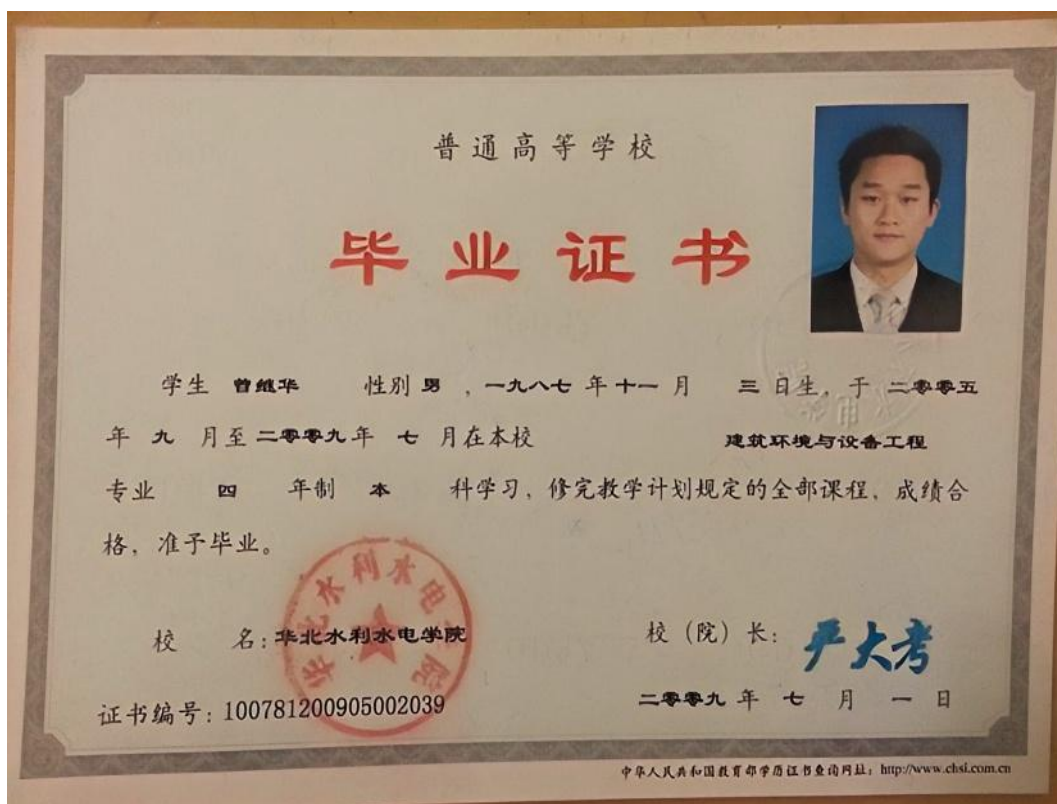 普通高等学校
毕业证书
学生 曾继华 性别 男 ，一九八七 年 十一 月 三 日生，于 二零零五
年 九 月至 二零零九 年 七 月在本校 建筑环境与设备工程
专业 四 年制 本 科学习，修完教学计划规定的全部课程，成绩合
格，准予毕业。
华北水利水电学院
校 名：华北水利水电学院
校（院）长：严大考
证书编号：100781200905002039
二零零九 年 七 月 一 日
中华人民共和国教育部学历证书查询网址：http://www.chsi.com.cn